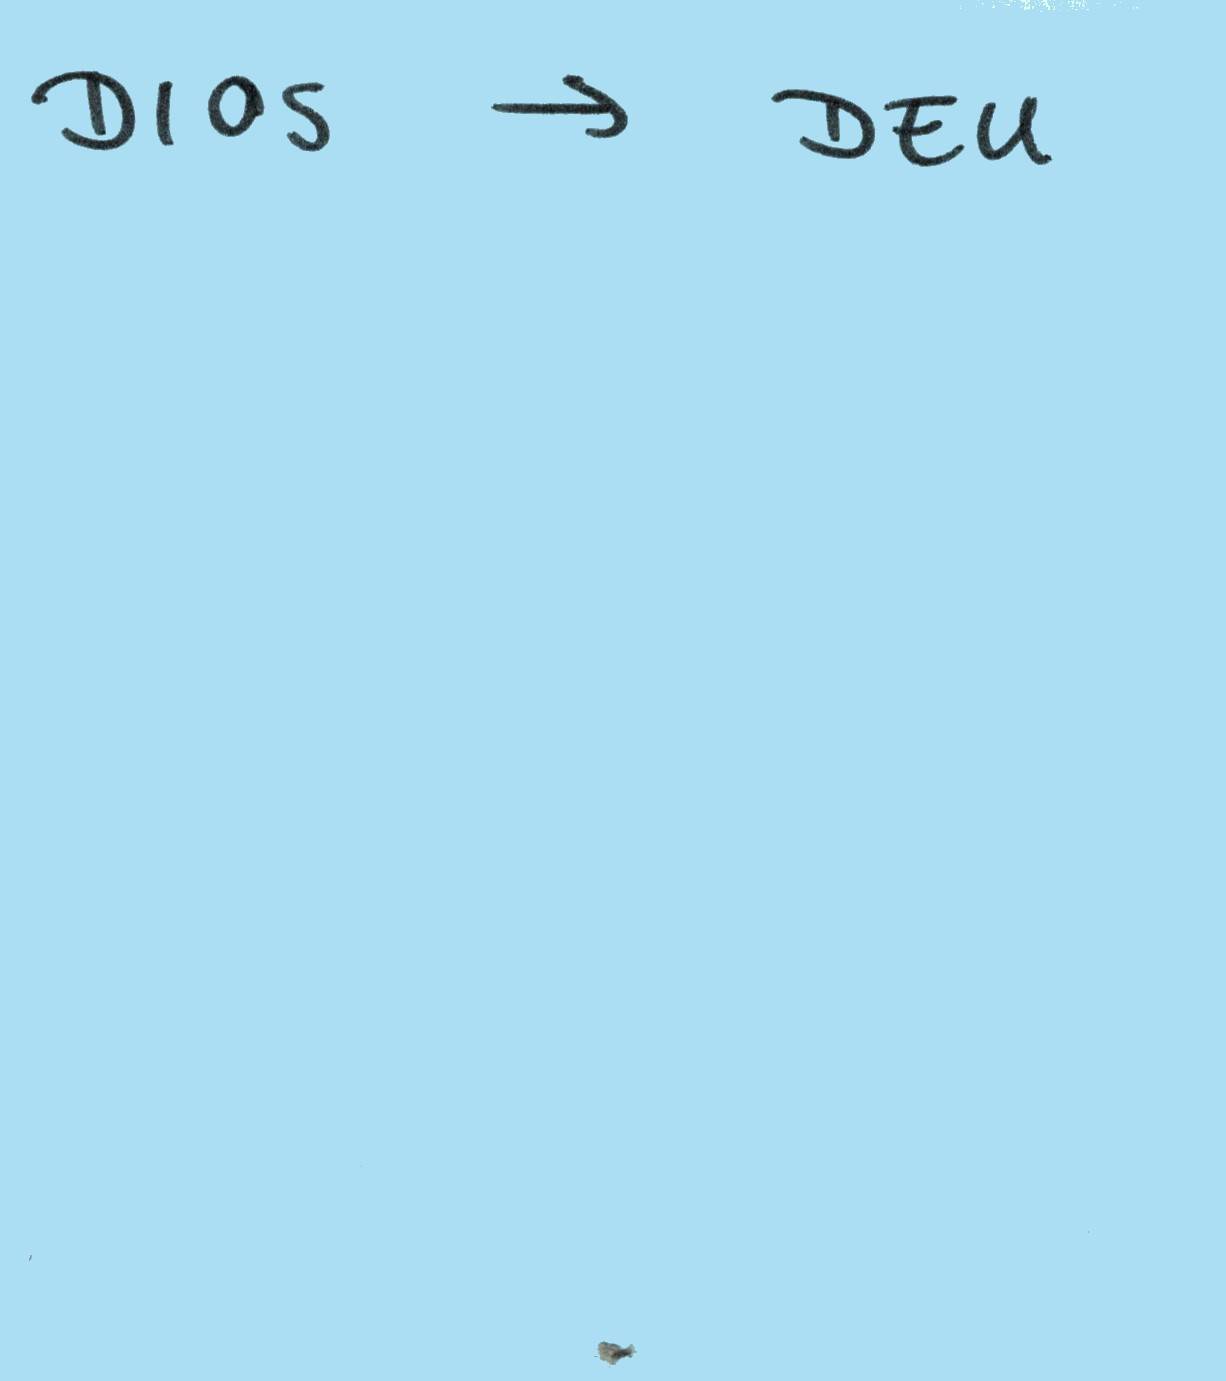 DIOS → DEU